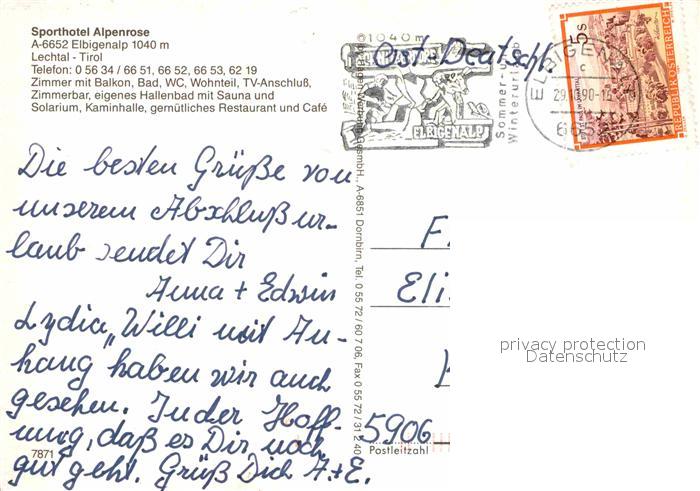 Sporthotel Alpenrose
A-6652 Elbigenalp 1040 m
Lechtal - Tirol
Telefon: 0 56 34 / 66 51, 66 52, 66 53, 62 19
Zimmer mit Balkon, Bad, WC, Wohnteil, TV-Anschluß,
Zimmerbar, eigenes Hallenbad mit Sauna und
Solarium, Kaminhalle, gemütliches Restaurant und Café
Die besten Grüße von
unserem Abschlußur-
laub sendet Dir
Anna + Edwin
Lydia, Willi mit An-
hang haben wir auch
gesehen. In der Hoff-
nung, daß es Dir noch
gut geht. Grüß Dich A+E.
7871
GesmbH., A-6851 Dornbirn, Tel. 0 55 72 / 60 7 06, Fax 0 55 72 / 31 2 40
1040 m
ELBIGENALP
Sommer-u
Winterurlaub
Deutschl.
ELBIGENALP
c
90-12
665
5 S
REPUBLIK ÖSTERREICH
F
Eli
5906
Postleitzahl
privacy protection
Datenschutz